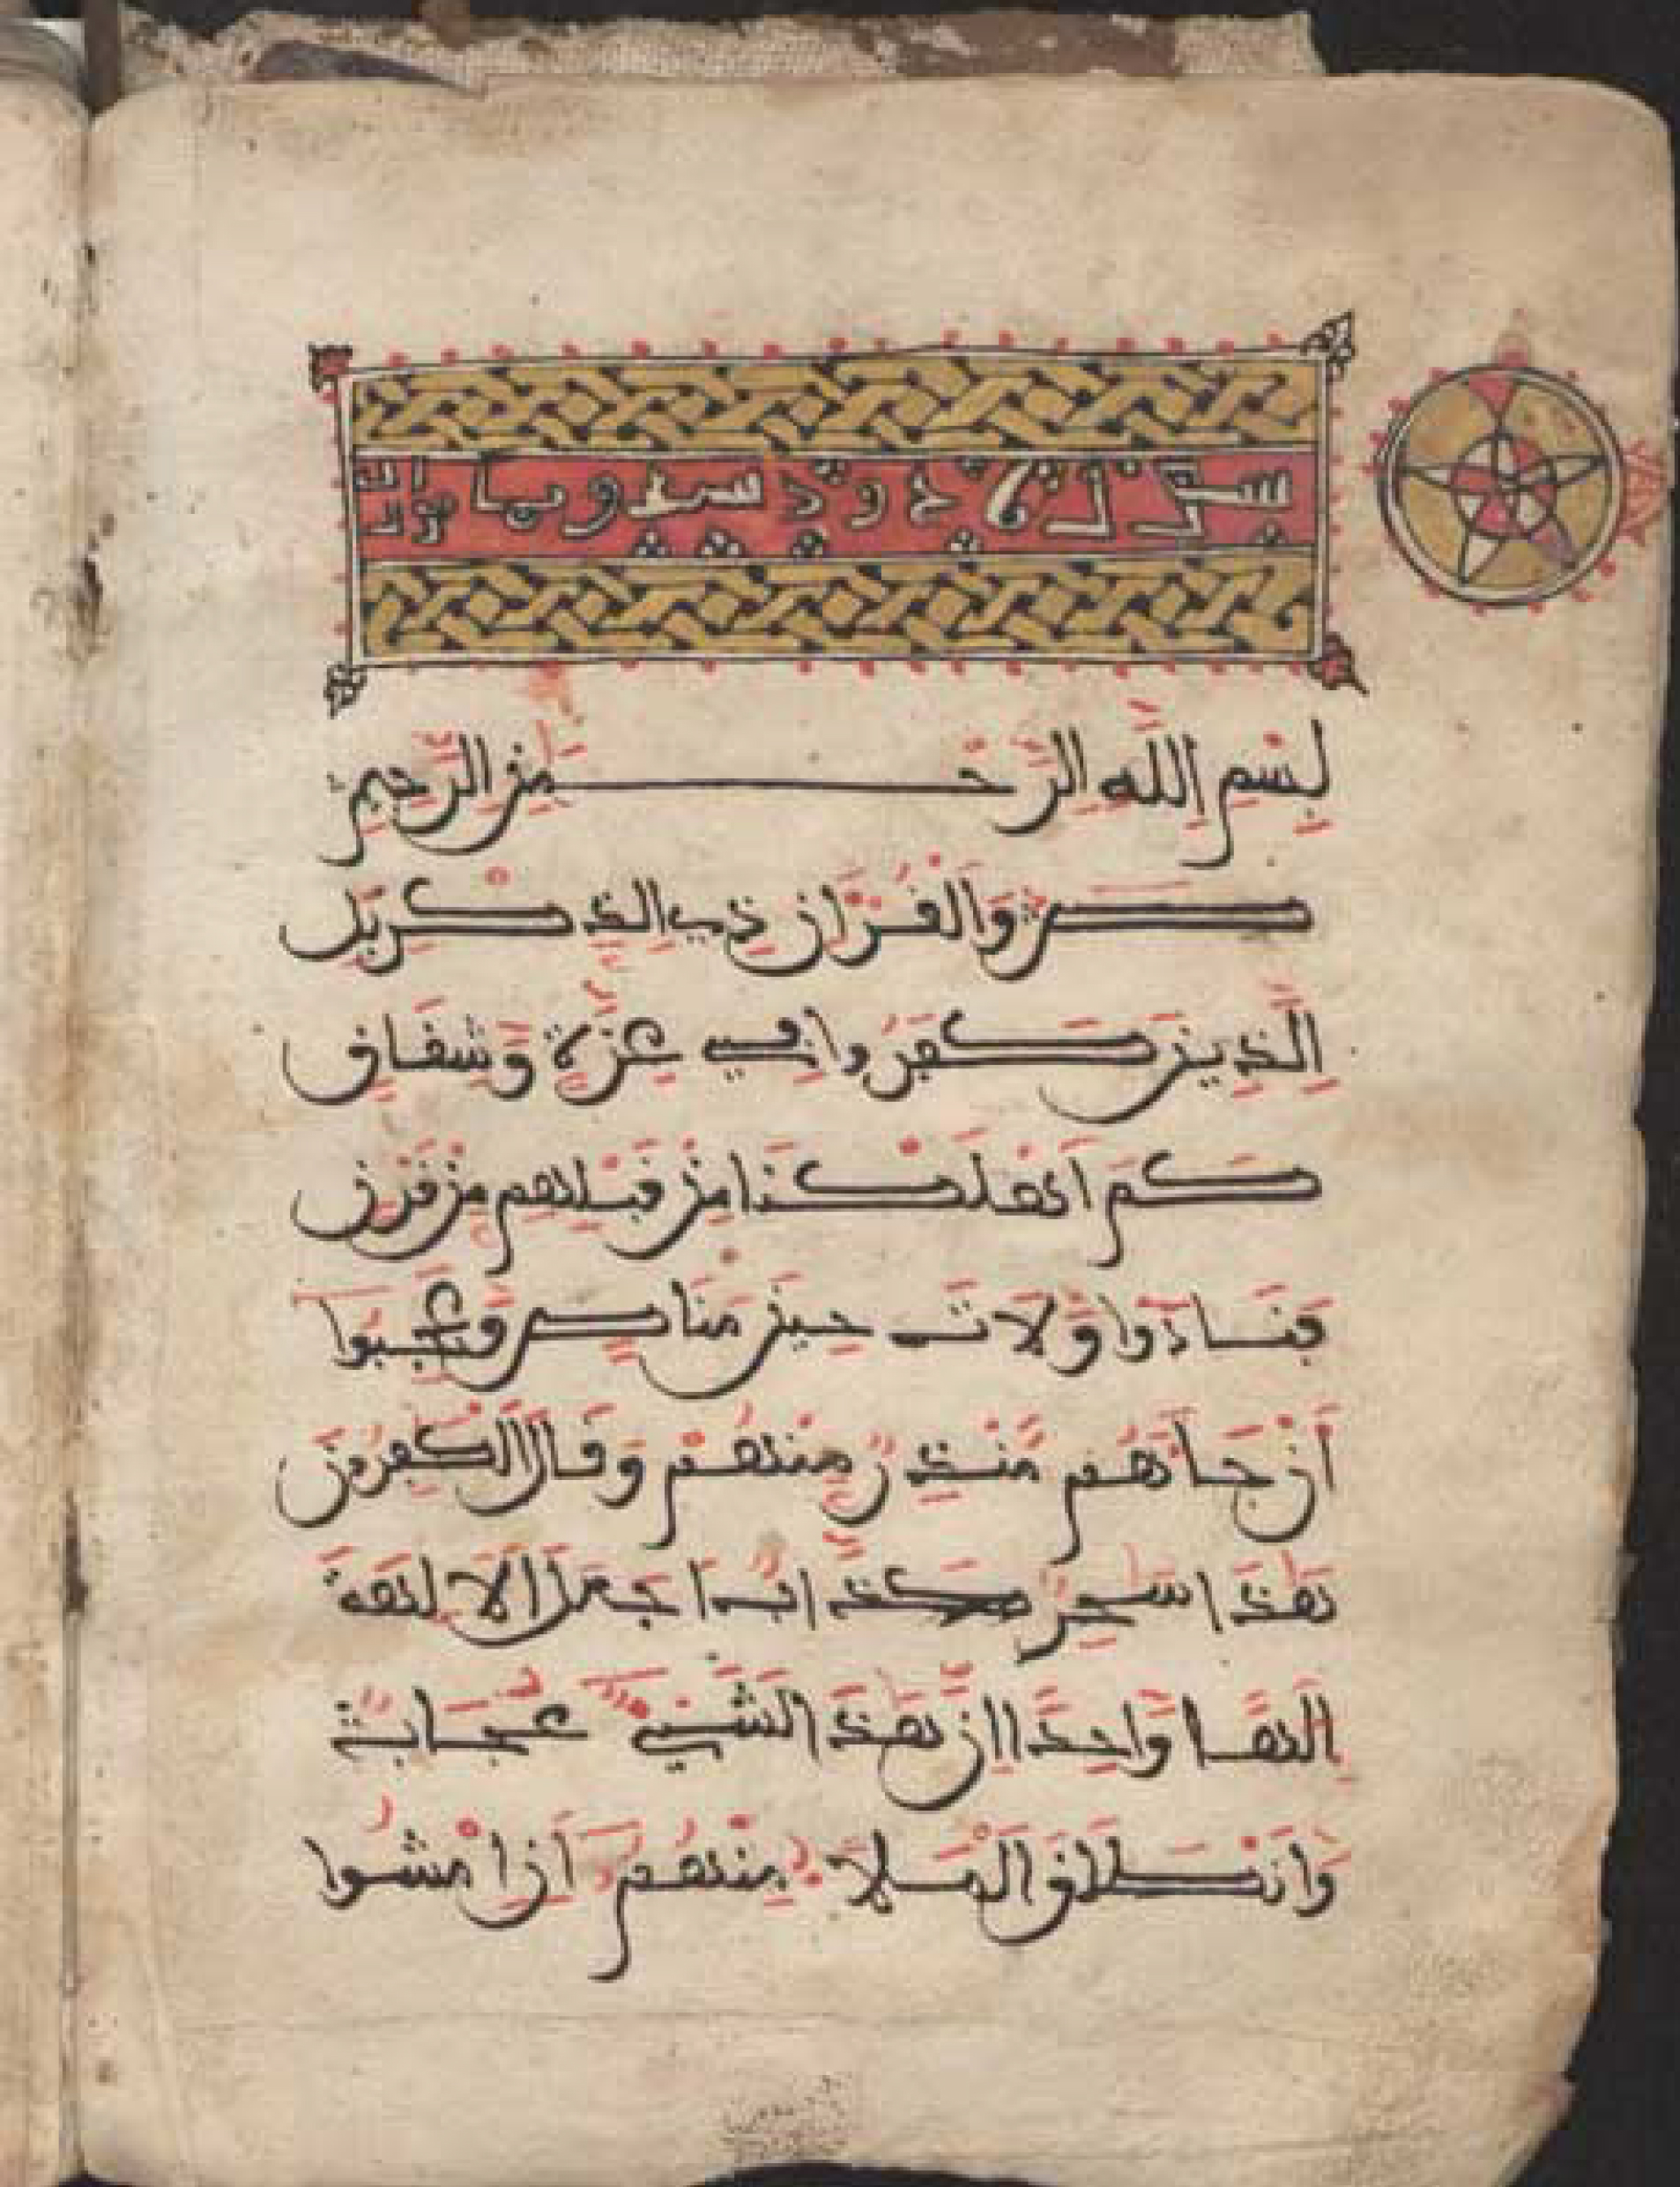 سورة داود
بِسْمِ اِللَّهِ اِلرَّحْمَٰنِ اِلرَّحِيمِ
صٓ وَالْقُرْءَانِ ذِي اِلذِّكْرِ بَلِ
اِلذِينَ كَفَرُوا فِي عِزَّةٍ وَشِقَاقٍ
كَمَ اَهْلَكْنَا مِن قَبْلِهِم مِّن قَرْنٍ
فَنَادَوا وَّلَاتَ حِينَ مَنَاصٍ وَعَجِبُوا
أَن جَاءَهُم مُّنذِرٌ مِّنْهُمْ وَقَالَ الْكَٰفِرُونَ
هَٰذَا سَٰحِرٌ كَذَّابٌ اَجَعَلَ الَالِهَةَ
إِلَٰهًا وَٰحِدًا اِنَّ هَٰذَا لَشَيْءٌ عُجَابٌ
وَانطَلَقَ الْمَلَأُ مِنْهُمُ أَنِ اِمْشُوا